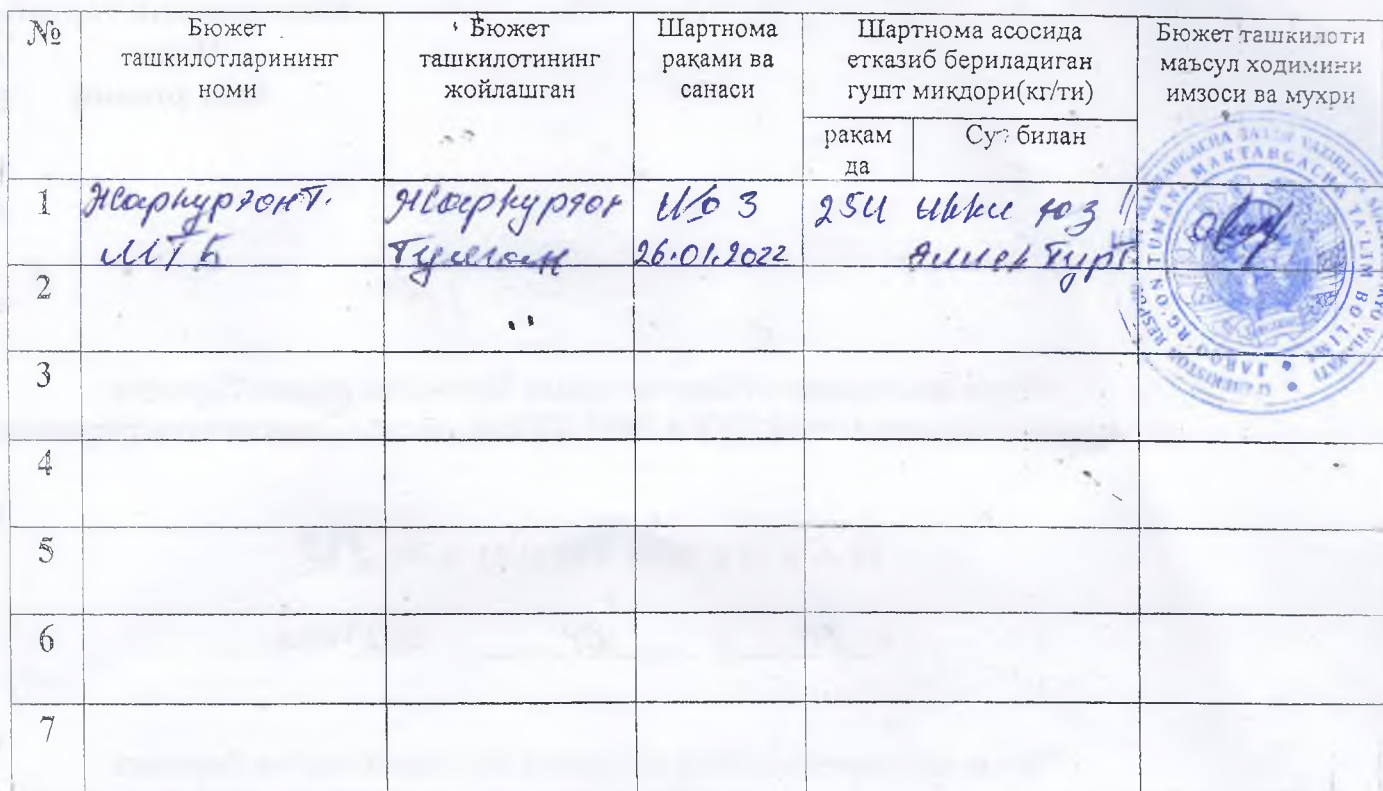 №
Бюжет
ташкилотларининг
номи
Бюжет
ташкилотининг
жойлашган
Шартнома
рақами ва
санаси
Шартнома асосида
етказиб бериладиган
гушт микдори(кг/ти)
рақам
да
Суз билан
Бюжет ташкилоти
маъсул ходимини
имзоси ва мухри
1
Жаркургон Т.
МТБ
Жаркургон
Туман
№ 3
26.01.2022
254
икки юз
эллик турт
2
3
4
5
6
7